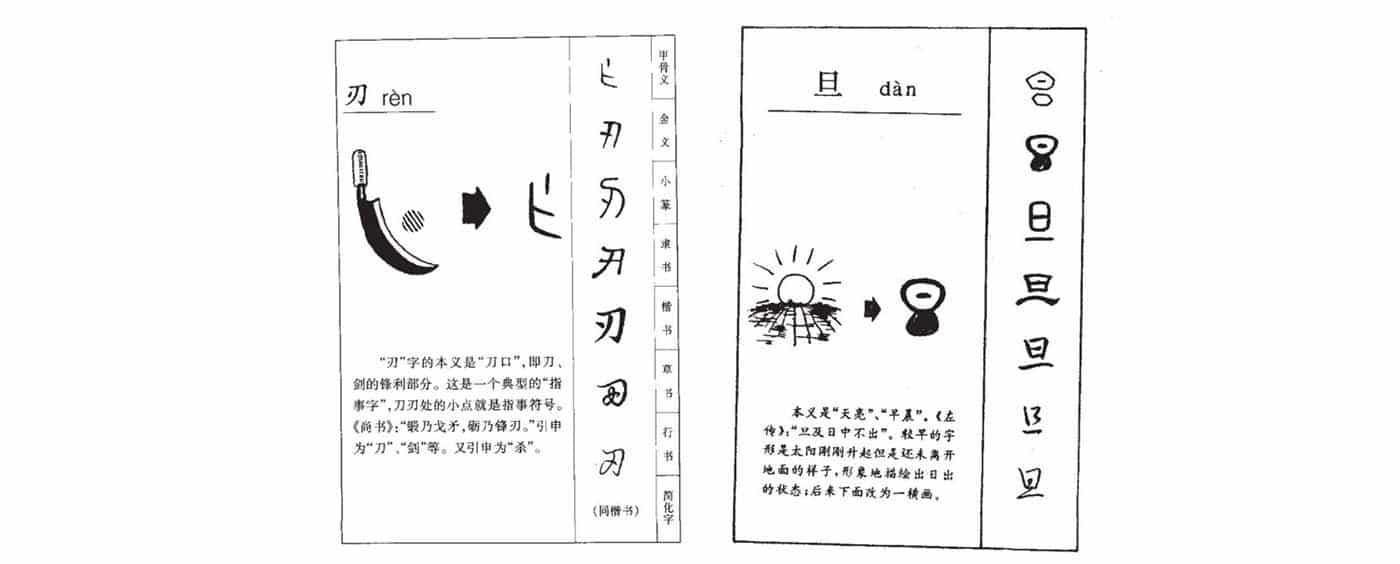 刃 rèn
“刃”字的本义是“刀口”,即刀、
剑的锋利部分。这是一个典型的“指
事字”,刀刃处的小点就是指事符号。
《尚书》:“锻乃戈矛,砺乃锋刃。”引申
为“刀”、“剑”等。又引申为“杀”。
刃
刃
刃
刃
刃
刃
刃
(同楷书)
甲骨文
金文
小篆
隶书
楷书
草书
行书
简化字
旦 dàn
本义是“天亮”、“早晨”。《左
传》:“旦及日中不出”。较早的字
形是太阳刚刚升起但是还未离开
地面的样子,形象地描绘出日出
的状态;后来下面改为一横画。
旦
旦
旦
旦
旦
旦
旦